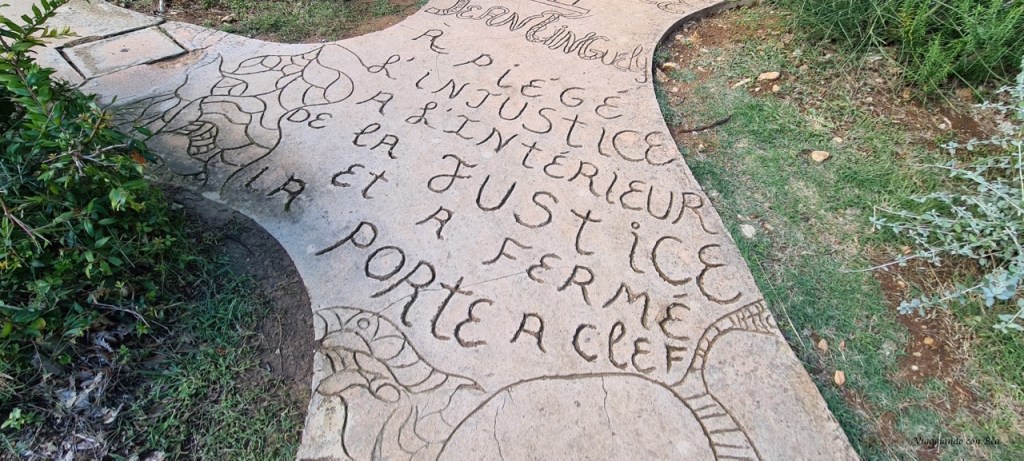 JEAN TINGUELY
A PIÉGÉ
L'INJUSTICE
A L'INTÉRIEUR
DE LA JUSTiCE
Et A FERMÉ
lA PORtE A ClEF
Viaggiando con Bea